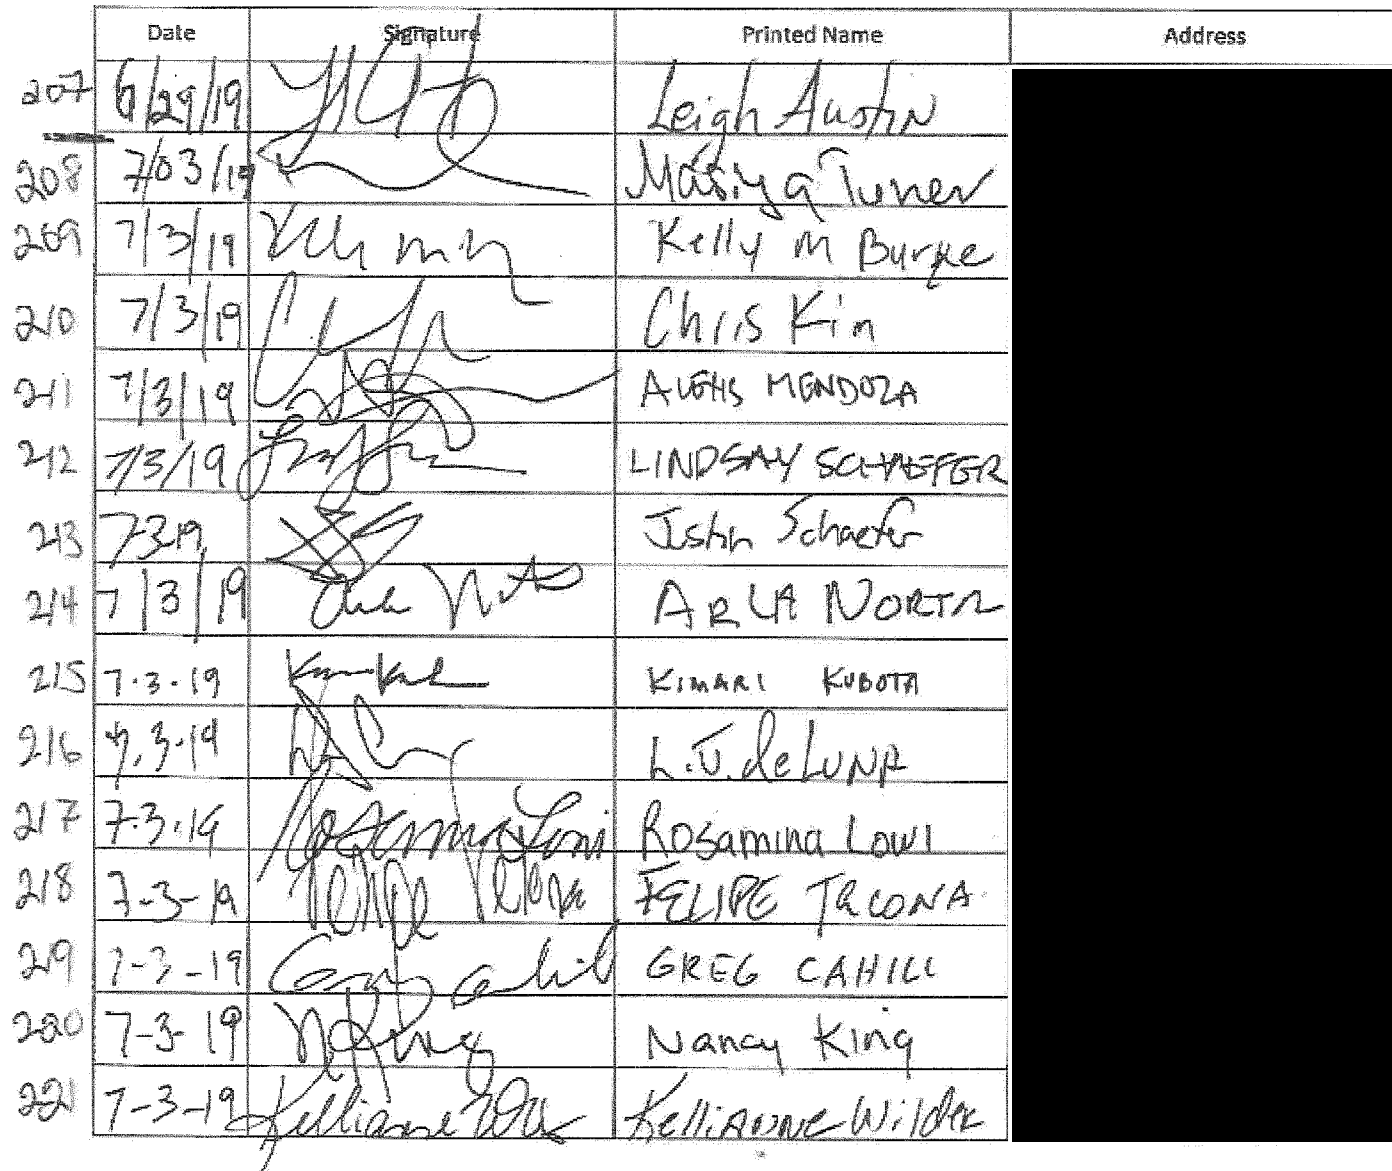 Date Signature Printed Name Address
207 6/29/19 Leigh Austin
208 7/03/19 Masiya Turner
209 7/3/19 Kelly M Burke
210 7/3/19 Chris Kim
211 7/3/19 ALEXIS MENDOZA
212 7/3/19 LINDSAY SCHAEFFER
213 7-3-19 Justin Schaefer
214 7/3/19 ARLA NORTH
215 7.3.19 KIMARI KUBOTA
216 7.3.19 L.J. de LUNA
217 7.3.19 Rosamina Lowi
218 7-3-19 FELIPE
219 7-3-19 GREG CAHILL
220 7-3-19 Nancy King
221 7-3-19 Kellianne Wilder